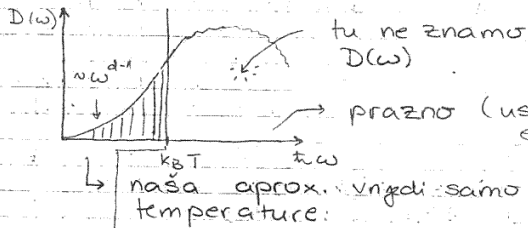 D(ω)
tu ne znamo
D(ω)
~ω^{d-1}
prazno (us
k_BT
ħω
naša aprox. vrijedi samo
temperature: